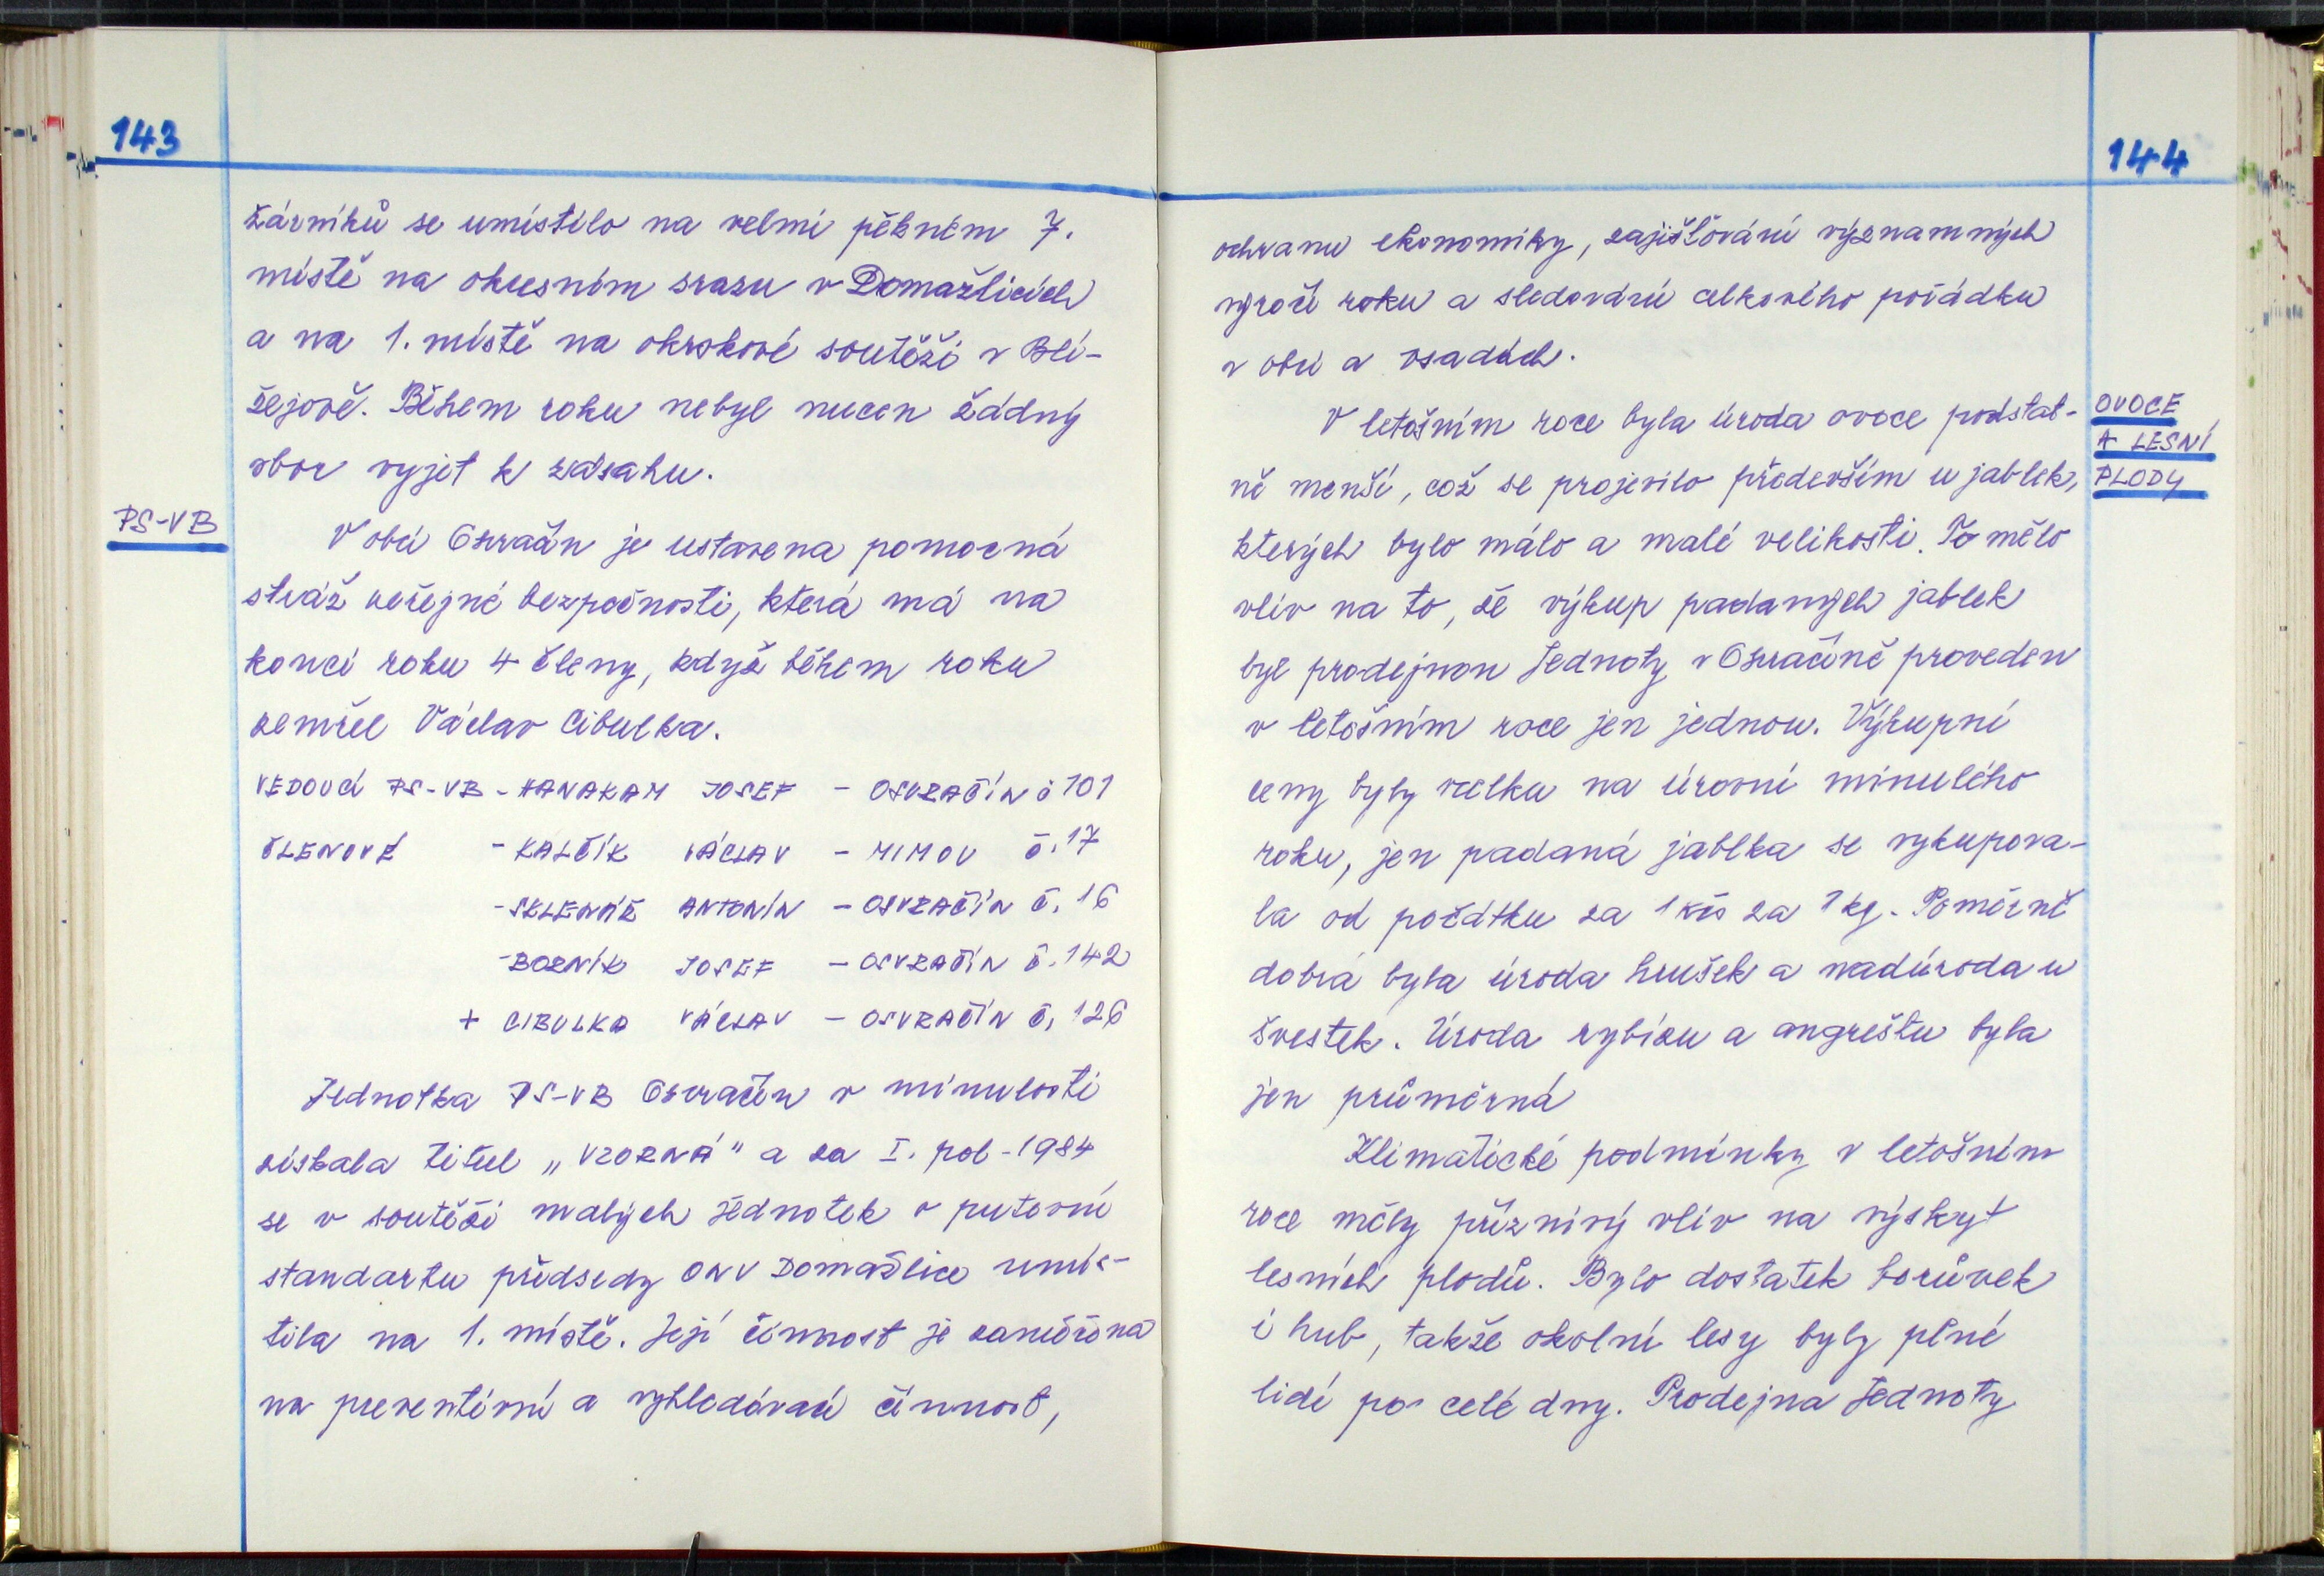 143
žárníků se umístilo na velmi pěkném 7.
místě na okresním srazu v Domažlicích
a na 1. místě na okrskové soutěži v Bli-
žejově. Během roku nebyl nucen žádný
sbor vyjet k zásahu.
PS-VB
V obci Osvračín je ustavena pomocná
stráž veřejné bezpečnosti, která má na
konci roku 4 členy, když během roku
zemřel Václav Cibulka.
VEDOUCÍ PS-VB - HANAKAM JOSEF - OSVRAČÍN č 101
ČLENOVÉ - KALČÍK VÁCLAV - MIMOV č. 17
- SKLENÁŘ ANTONÍN - OSVRAČÍN č. 16
- BORNÍK JOSEF - OSVRAČÍN č. 142
+ CIBULKA VÁCLAV - OSVRAČÍN č. 126
Jednotka PS-VB Osvračín v minulosti
získala titul „VZORNÁ" a za I. pol - 1984
se v soutěži malých jednotek o putovní
standartu předsedy ONV Domažlice umís-
tila na 1. místě. Její činnost je zaměřena
na preventivní a vyhledávací činnost,
144
ochranu ekonomiky, zajišťování významných
výročí roku a sledování celkového pořádku
v obci a osadách.
OVOCE
A LESNÍ
PLODY
V letošním roce byla úroda ovoce podstat-
ně menší, což se projevilo především u jablek,
kterých bylo málo a malé velikosti. To mělo
vliv na to, že výkup padaných jablek
byl prodejnou Jednoty v Osvračíně proveden
v letošním roce jen jednou. Výkupní
ceny byly vcelku na úrovni minulého
roku, jen padaná jablka se vykupova-
la od počátku za 1 Kčs za 1 kg. Poměrně
dobrá byla úroda hrušek a nadúroda u
švestek. Úroda rybízu a angreštu byla
jen průměrná
Klimatické podmínky v letošním
roce měly příznivý vliv na výskyt
lesních plodů. Bylo dostatek borůvek
i hub, takže okolní lesy byly plné
lidí po celé dny. Prodejna Jednoty